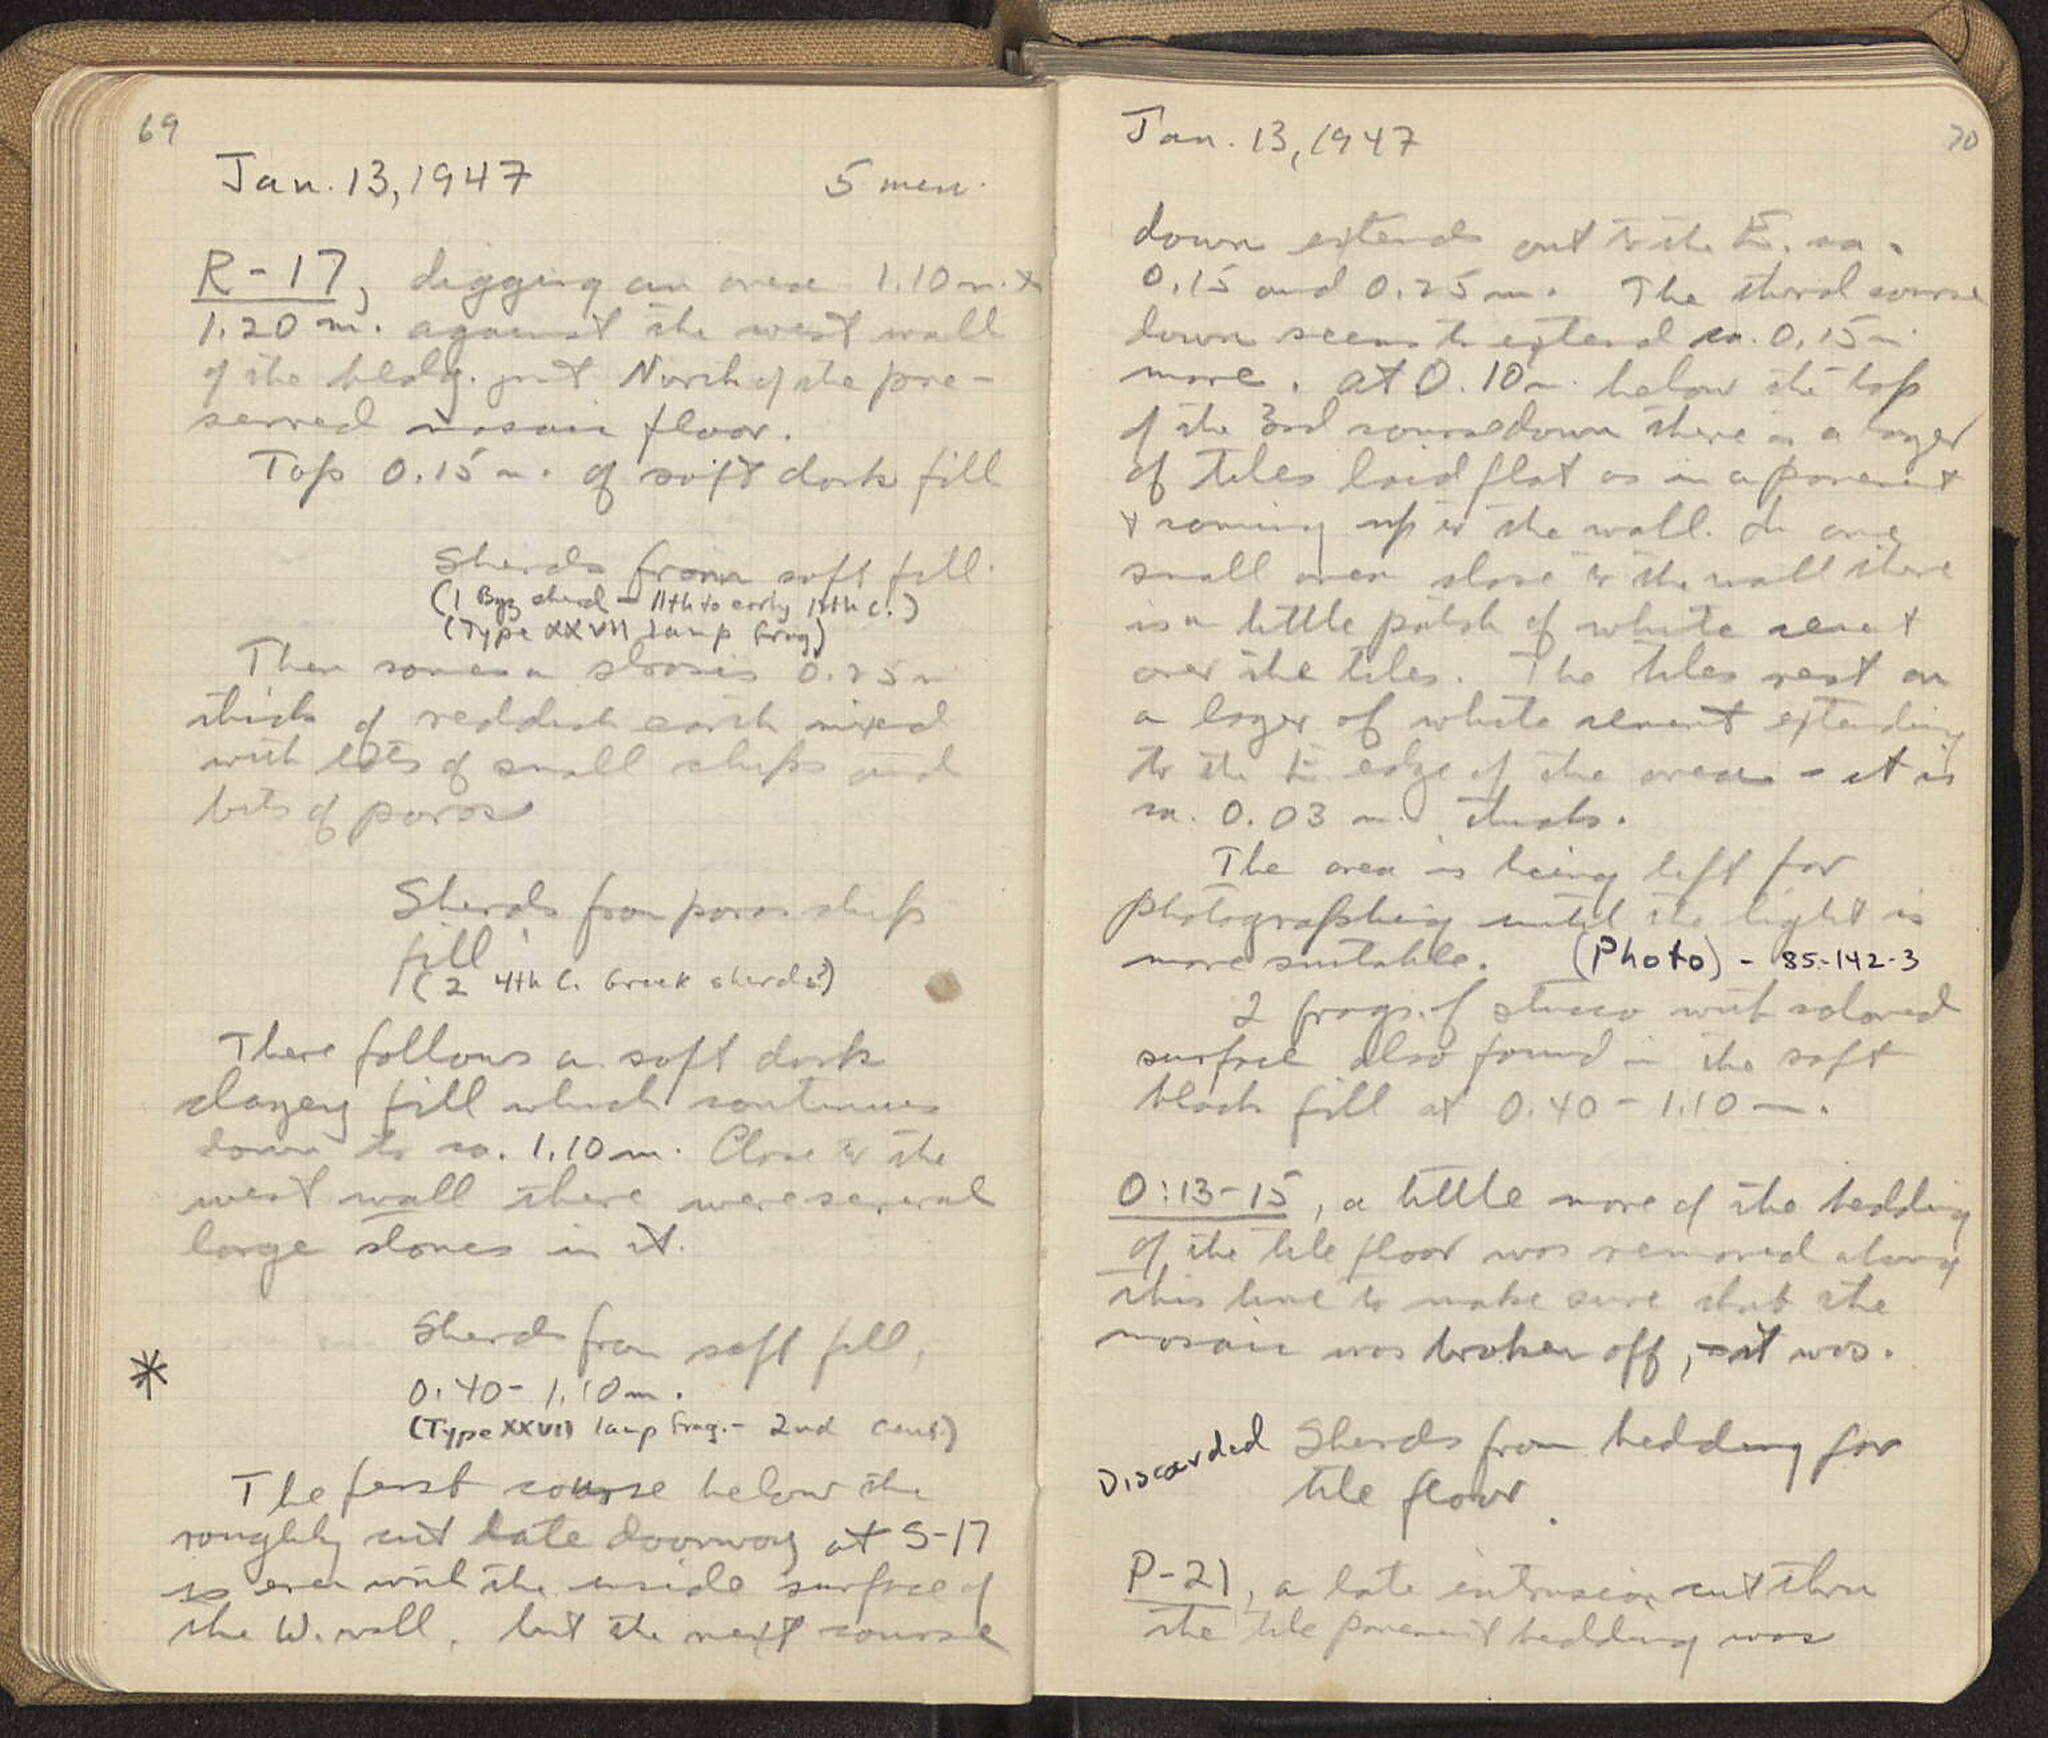 69
Jan. 13, 1947 5 men.
R-17, digging an area 1.10 m. x
1.20 m. against the west wall
of the bldg. just North of the pre-
served mosaic floor.
Top 0.15 m. of soft dark fill
Sherds from soft fill.
(1 Byz sherd - 11th to early 12th c.)
(Type XXVII lamp frag)
Then comes a stosis 0.25 m
thick of reddish earth mixed
with lots of small chips and
bits of poros
Sherds from poros chips
fill
(2 4th C. Greek sherds?)
There follows a soft dark
clayey fill which continues
down to ca. 1.10 m. Close to the
west wall there were several
large stones in it.
* Sherds from soft fill,
0.40 - 1.10 m.
(Type XXVII lamp frag. - 2nd cent.)
The first course below the
roughly cut late doorway at S-17
is even with the inside surface of
the W. wall, but the next course
70
Jan. 13, 1947
down extends out to the E. ca.
0.15 and 0.25 m. The third course
down seems to extend ca. 0.15 m
more. At 0.10 m. below the top
of the 3rd course down there is a layer
of tiles laid flat as in a pavement
+ coming up to the wall. In one
small area close to the wall there
is a little patch of white cement
over the tiles. The tiles rest on
a layer of white cement extending
to the E. edge of the area - it is
ca. 0.03 m. thick.
The area is being left for
photographing until the light is
more suitable. (Photo) - 85-142-3
2 frags. of stucco with colored
surface also found in the soft
black fill at 0.40 - 1.10 m.
O:13-15, a little more of the bedding
of the tile floor was removed along
this line to make sure that the
mosaic was broken off, - it was.
Discarded Sherds from bedding for
tile floor.
P-21, a late intrusion cut thru
the tile pavement bedding was